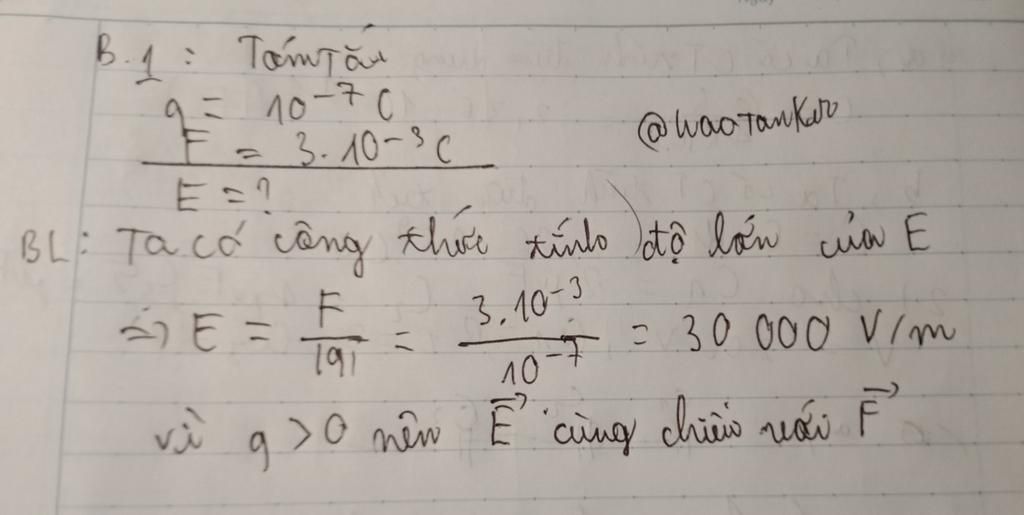 B.1: Tóm Tắt
q = 10⁻⁷ C
@HaoTanKuro
F = 3.10⁻³ C
E = ?
BL: Ta có công thức tính độ lớn của E
=> E = F/|q| = 3.10⁻³/10⁻⁷ = 30 000 V/m
vì q > 0 nên E⃗ cùng chiều với F⃗